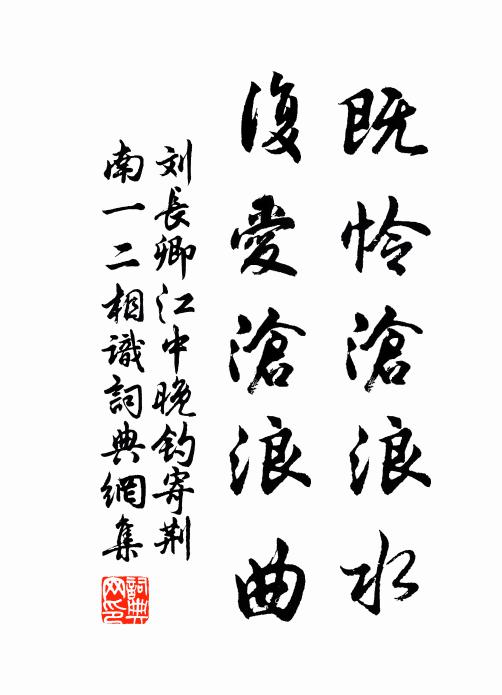 既怜滄浪水
復愛滄浪曲
刘長卿江中晚钓寄荆
南一二相識詞典網集
詞典
网印